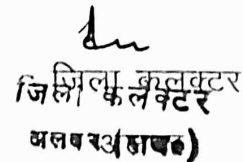 जिला कलक्टर
जिला कलेक्टर
अलवर